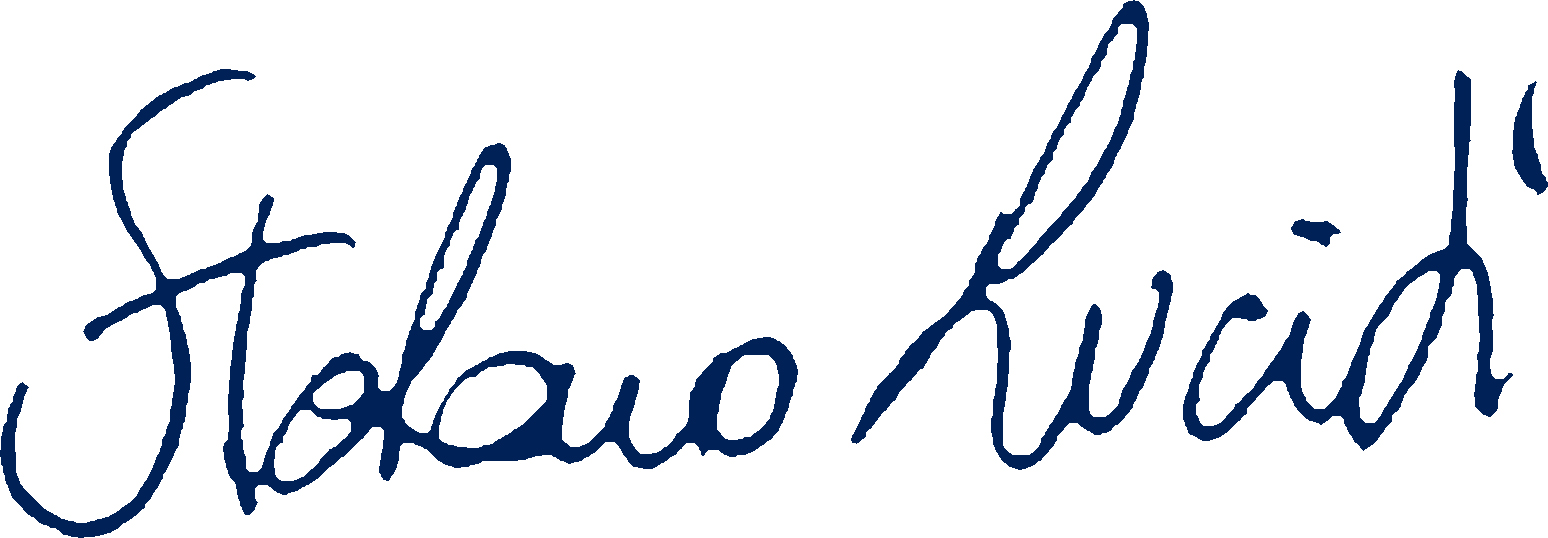 Stefano Lucidi